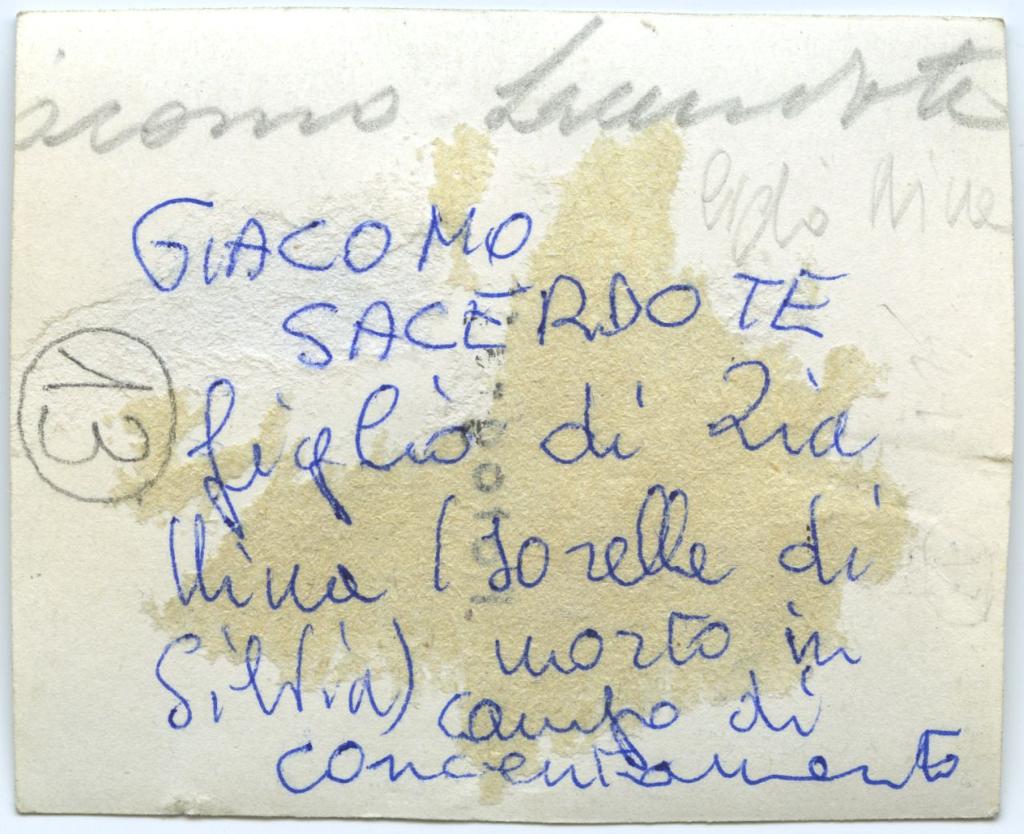 Giacomo Sacerdote
figlio Nina
GIACOMO
SACERDOTE
13
figlio di Zia
Nina (sorella di
Silvia) morto in
campo di
concentramento